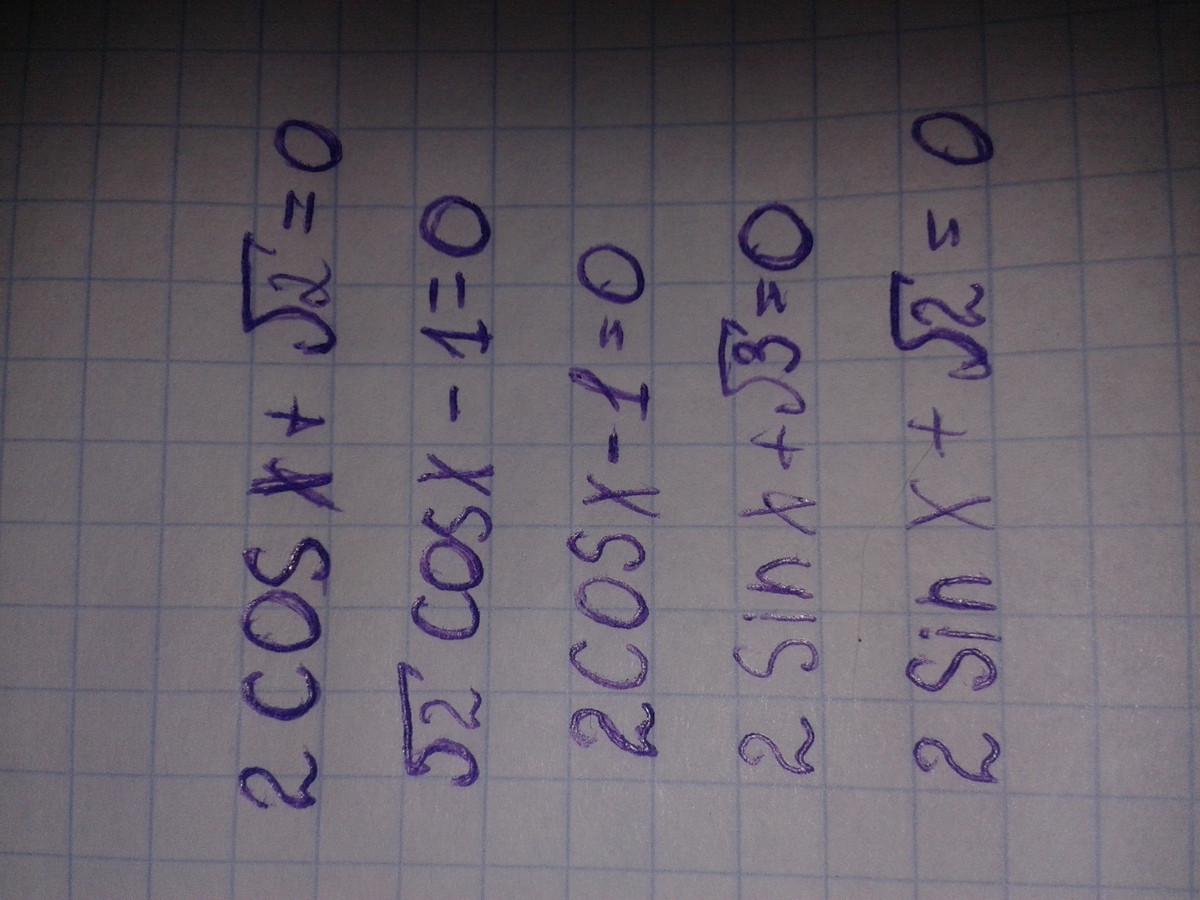 2 cos x + √2 = 0
√2 cos x - 1 = 0
2 cos x - 1 = 0
2 sin x + √3 = 0
2 sin x + √2 = 0